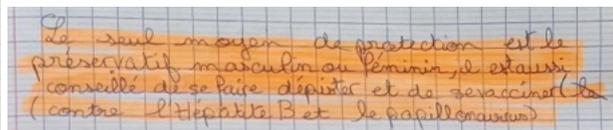 Le seul moyen de protection est le
préservatif masculin ou féminin, il est aussi
conseillé de se faire dépister et de se vacciner (
(contre l'Hépatite B et le papillomavirus)